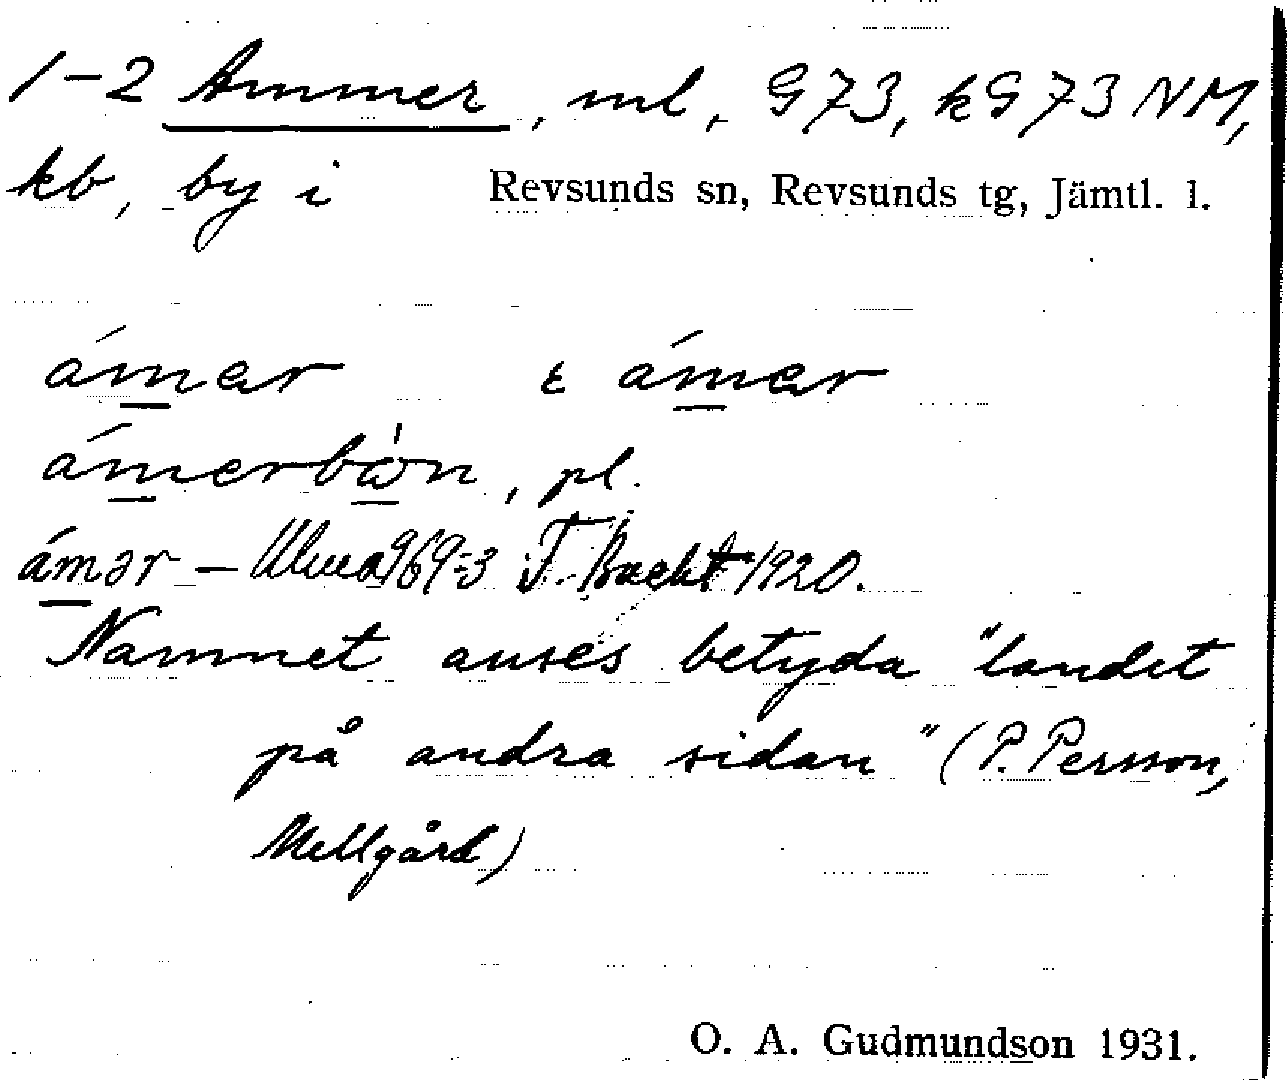 1-2 Ammer, ml, G73, kG73 NM,
kb, by i Revsunds sn, Revsunds tg, Jämtl. l.
ámer ε ámer
ámerbòn, pl.
ámər – Uma 969:3 T. Bucht 1920.
Namnet anses betyda "landet
på andra sidan" (P. Persson,
Mellgård)
O. A. Gudmundson 1931.